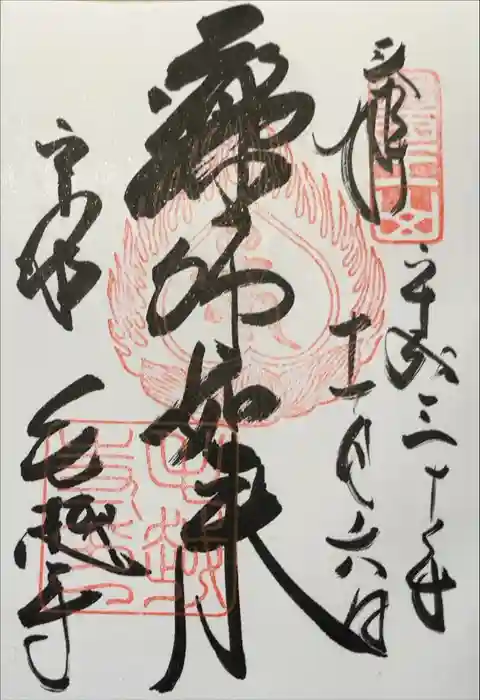 奉拝
平成三十年
月六日
薬師如来
平泉
毛越寺